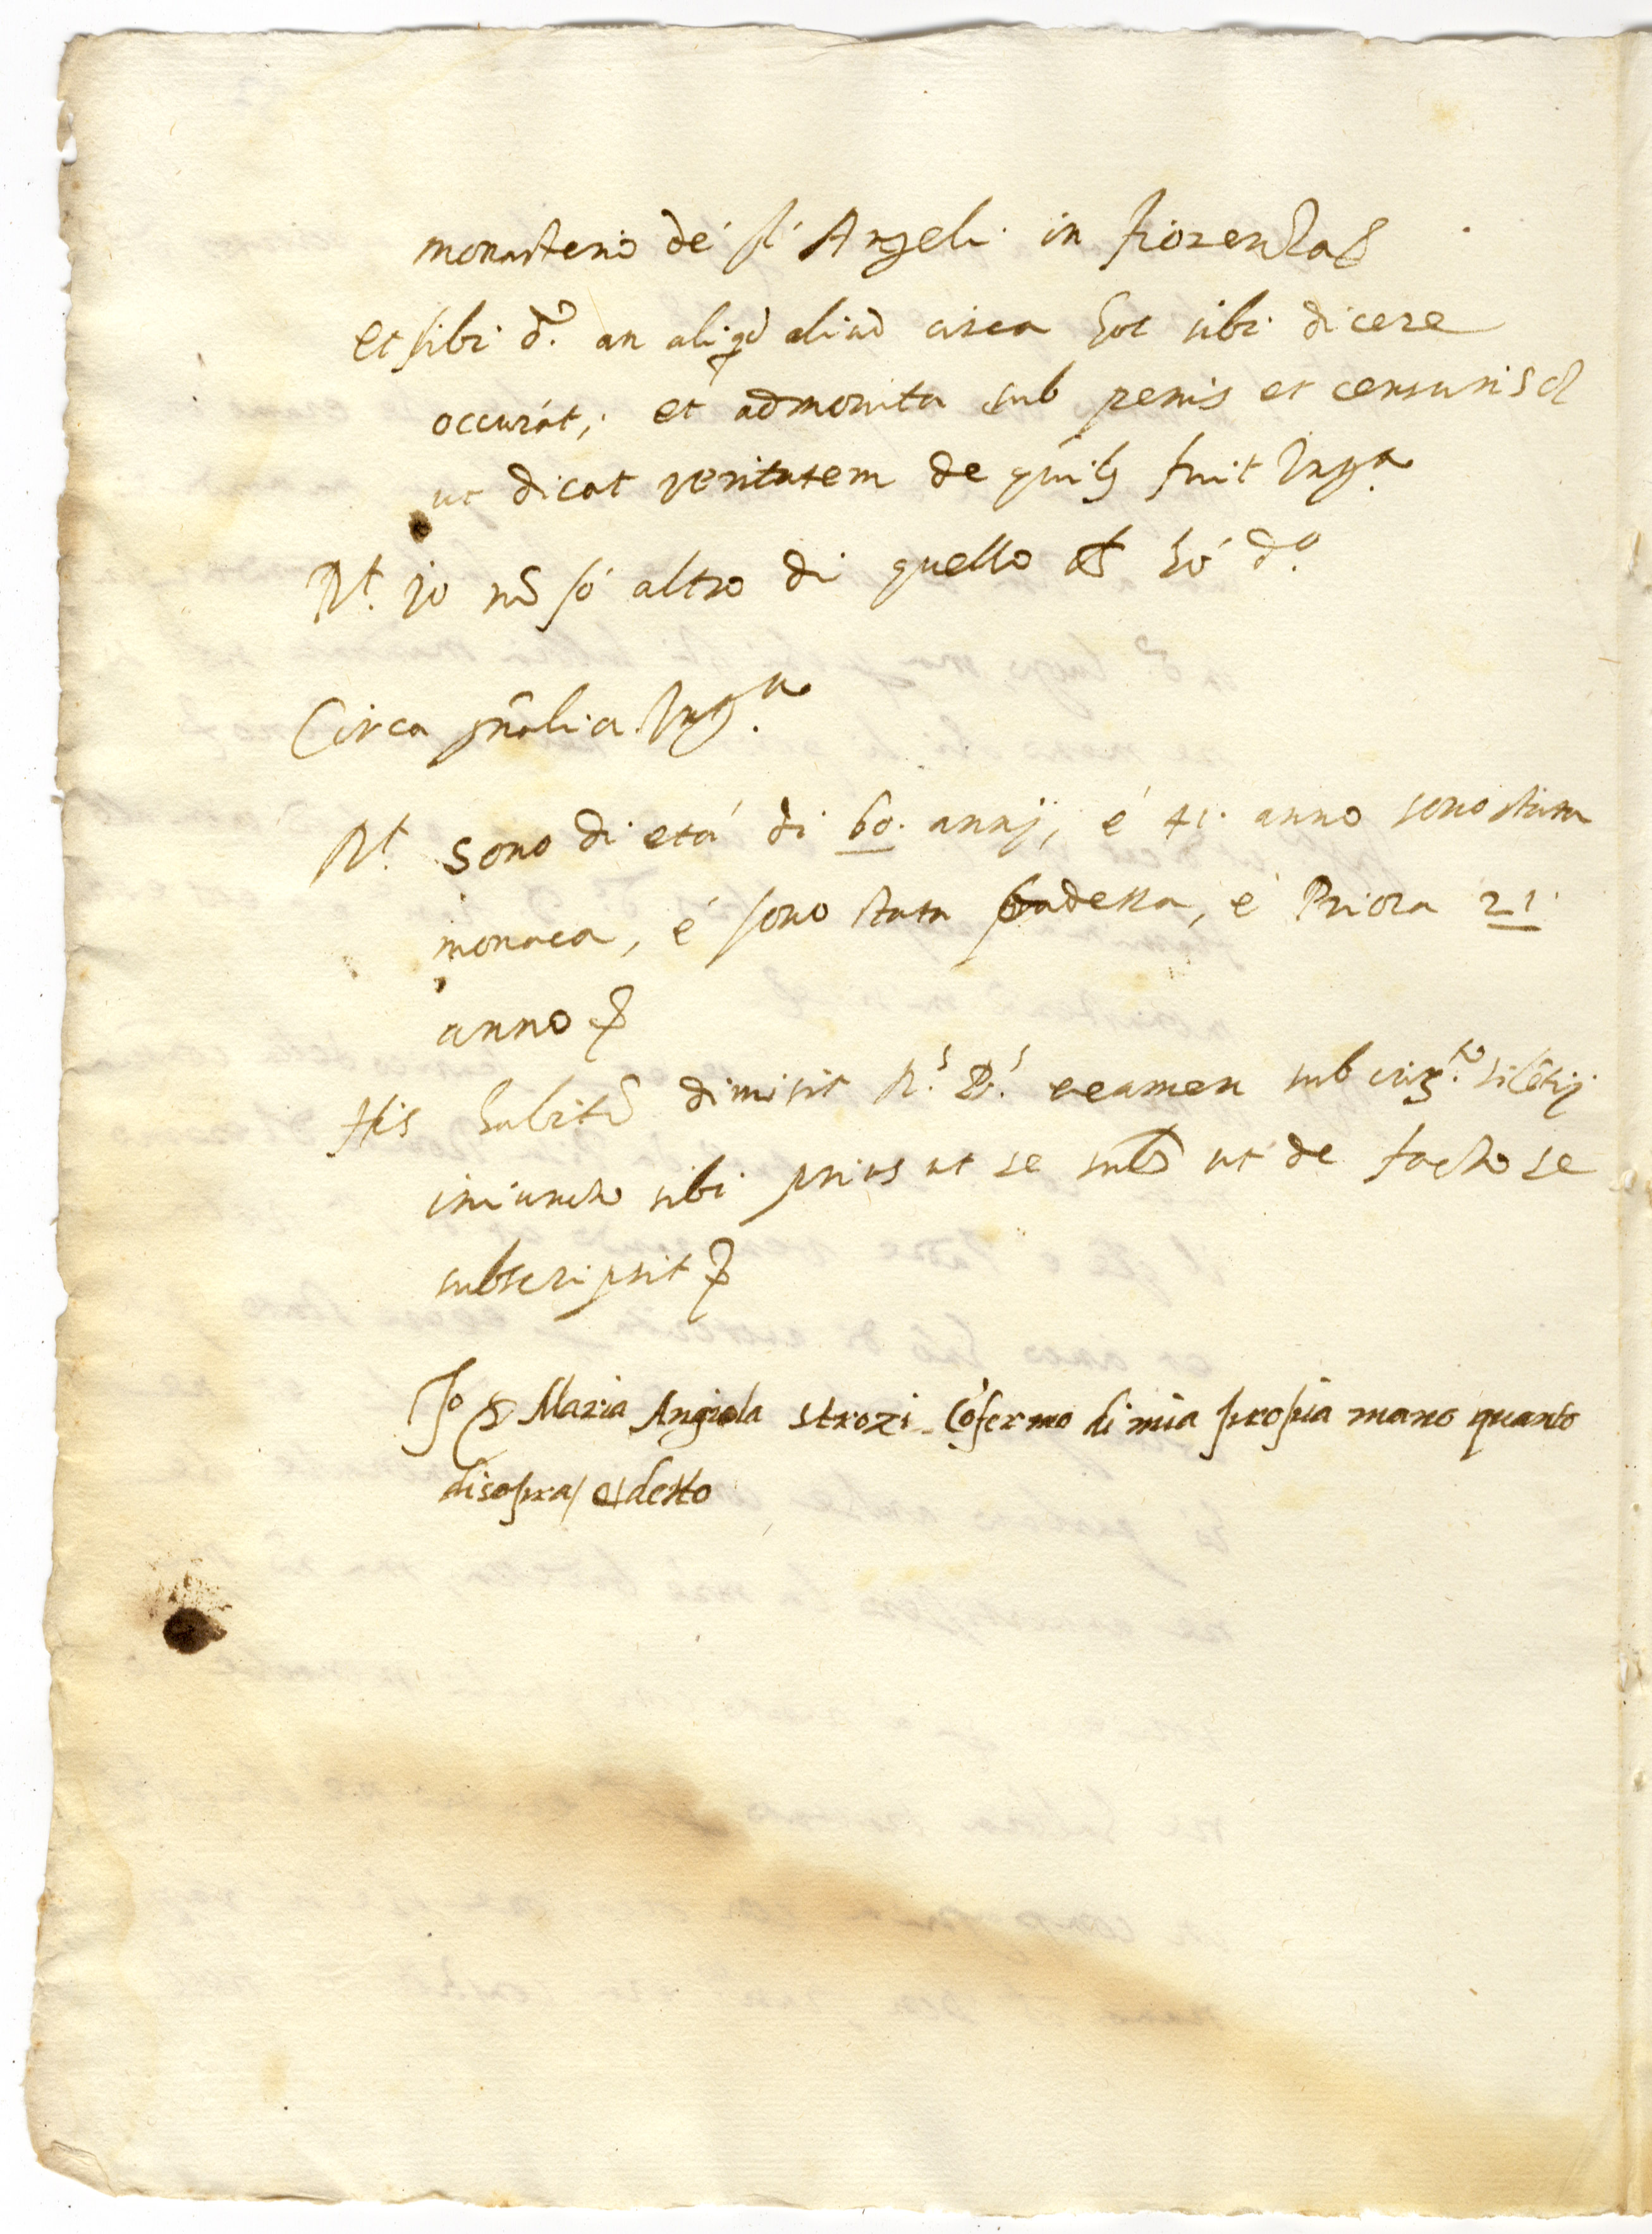 monasterio de' s.ti Angeli in fiorenza
Et sibi d.o an aliqd aliud circa hoc sibi dicere
occurat; et admonita sub penis et censuris
ut dicat veritatem de quib9 fuit Ing.a
R.t io nõ só altro di quello ch hó d.o
Circa gñalia Ing.a
R.t sono di etá di 60. annj, é 41. anno sono stata
monaca, é sono stata badessa, é Priora 21
anno
His habitis dimisit R.s D.s examen sub iur.to silẽtij
iniuncto sibi prius ut se sub ut de facto se
subscripsit
Jo S Maria Angiola strozi cõfermo di mia propia mano quanto
disopra e detto